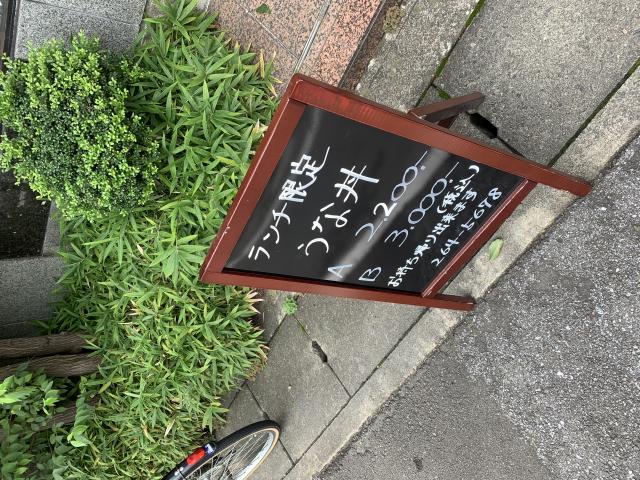 ランチ限定
うな丼
A 2,200.-
B 3,000.-
(税込)
お持ち帰り出来ます
264-5678